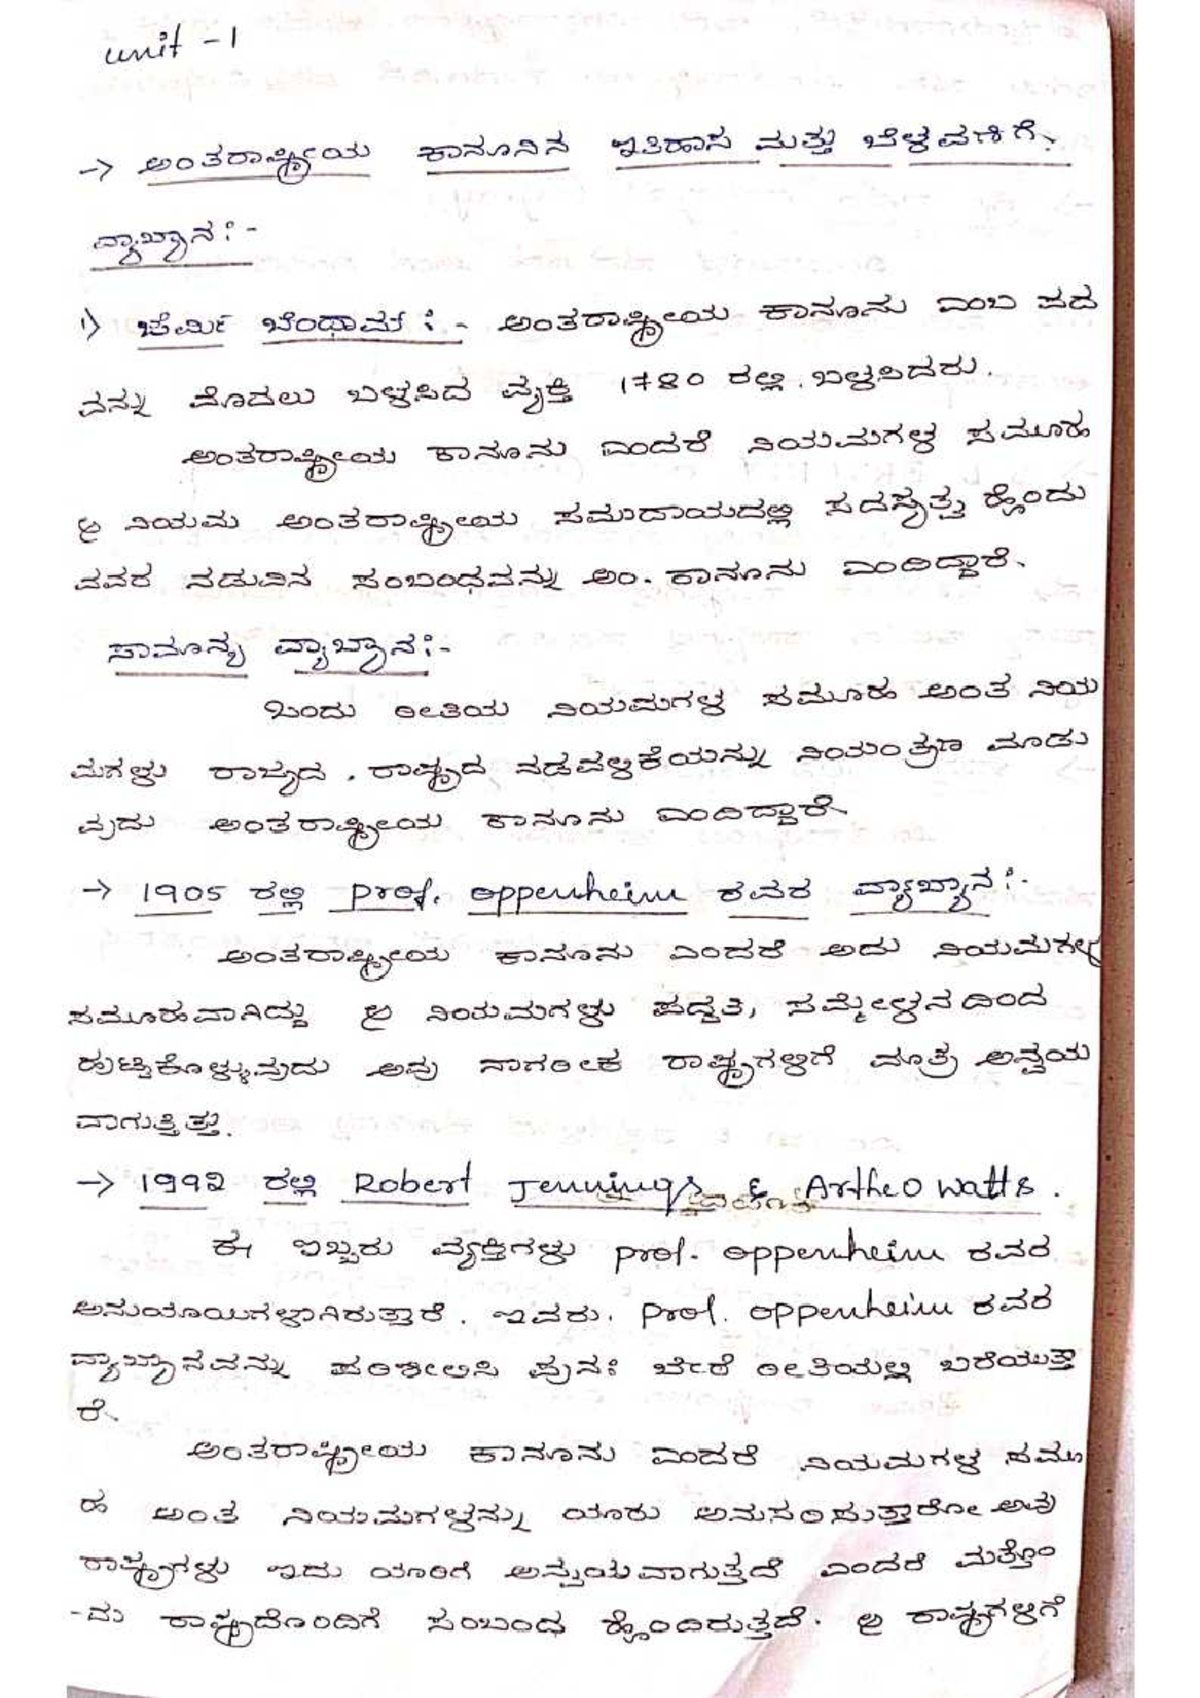 unit - 1
→ ಅಂತರಾಷ್ಟ್ರೀಯ ಕಾನೂನಿನ ಇತಿಹಾಸ ಮತ್ತು ಬೆಳವಣಿಗೆ.
ವ್ಯಾಖ್ಯಾನ :-
1) ಜೆರ್ಮಿ ಬೆಂಥಾಮ್ :- ಅಂತರಾಷ್ಟ್ರೀಯ ಕಾನೂನು ಎಂಬ ಪದ
ವನ್ನು ಮೊದಲು ಬಳಸಿದ ವ್ಯಕ್ತಿ 1780 ರಲ್ಲಿ ಬಳಸಿದರು.
ಅಂತರಾಷ್ಟ್ರೀಯ ಕಾನೂನು ಎಂದರೆ ನಿಯಮಗಳ ಸಮೂಹ
ಈ ನಿಯಮ ಅಂತರಾಷ್ಟ್ರೀಯ ಸಮುದಾಯದಲ್ಲಿ ಸದಸ್ಯತ್ವ ಹೊಂದು
ವವರ ನಡುವಿನ ಸಂಬಂಧವನ್ನು ಅಂ. ಕಾನೂನು ಎಂದಿದ್ದಾರೆ.
ಸಾಮಾನ್ಯ ವ್ಯಾಖ್ಯಾನ :-
ಒಂದು ರೀತಿಯ ನಿಯಮಗಳ ಸಮೂಹ ಅಂತ ನಿಯ
ಮಗಳು ರಾಜ್ಯದ, ರಾಷ್ಟ್ರದ ನಡವಳಿಕೆಯನ್ನು ನಿಯಂತ್ರಣ ಮಾಡು
ವುದು ಅಂತರಾಷ್ಟ್ರೀಯ ಕಾನೂನು ಎಂದಿದ್ದಾರೆ.
→ 1905 ರಲ್ಲಿ Prof. Oppenheim ರವರ ವ್ಯಾಖ್ಯಾನ :-
ಅಂತರಾಷ್ಟ್ರೀಯ ಕಾನೂನು ಎಂದರೆ ಅದು ನಿಯಮಗಳ
ಸಮೂಹವಾಗಿದ್ದು ಈ ನಿಯಮಗಳು ಪದ್ಧತಿ, ಸಮ್ಮೇಳನದಿಂದ
ಹುಟ್ಟಿಕೊಳ್ಳುವುದು ಅವು ನಾಗರೀಕ ರಾಷ್ಟ್ರಗಳಿಗೆ ಮಾತ್ರ ಅನ್ವಯ
ವಾಗುತ್ತಿತ್ತು.
→ 1992 ರಲ್ಲಿ Robert Jennings & Artheo Watts.
ಈ ಇಬ್ಬರು ವ್ಯಕ್ತಿಗಳು Prof. Oppenheim ರವರ
ಅನುಯಾಯಿಗಳಾಗಿರುತ್ತಾರೆ. ಇವರು. Prof. Oppenheim ರವರ
ವ್ಯಾಖ್ಯಾನವನ್ನು ಪರಿಶೀಲಿಸಿ ಪುನಃ ಬೇರೆ ರೀತಿಯಲ್ಲಿ ಬರೆಯುತ್ತಾ
ರೆ.
ಅಂತರಾಷ್ಟ್ರೀಯ ಕಾನೂನು ಎಂದರೆ ನಿಯಮಗಳ ಸಮೂ
ಹ ಅಂತ ನಿಯಮಗಳನ್ನು ಯಾರು ಅನುಸರಿಸುತ್ತಾರೋ ಅವು
ರಾಷ್ಟ್ರಗಳು ಇದು ಯಾರಿಗೆ ಅನ್ವಯವಾಗುತ್ತದೆ ಎಂದರೆ ಮತ್ತೊಂ
-ದು ರಾಷ್ಟ್ರದೊಂದಿಗೆ ಸಂಬಂಧ ಹೊಂದಿರುತ್ತದೆ. ಈ ರಾಷ್ಟ್ರಗಳಿಗೆ